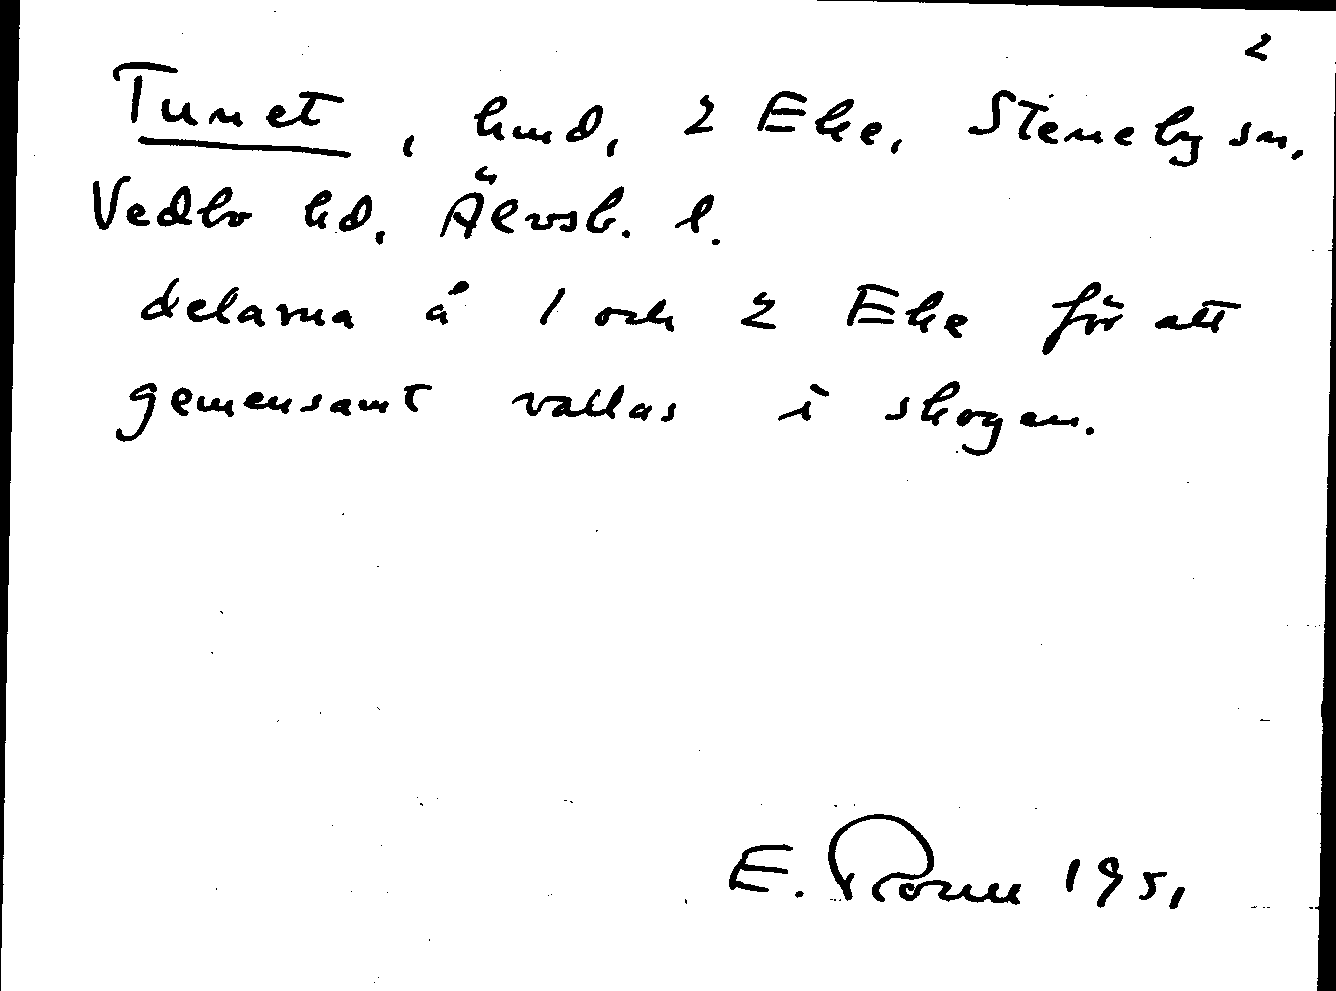 2
Tunet, hmd, 2 Eke, Steneby sn,
Vedbo hd, Älvsb. l.
delarna å 1 och 2 Eke för att
gemensamt vallas i skogen.
E. Rosell 1951